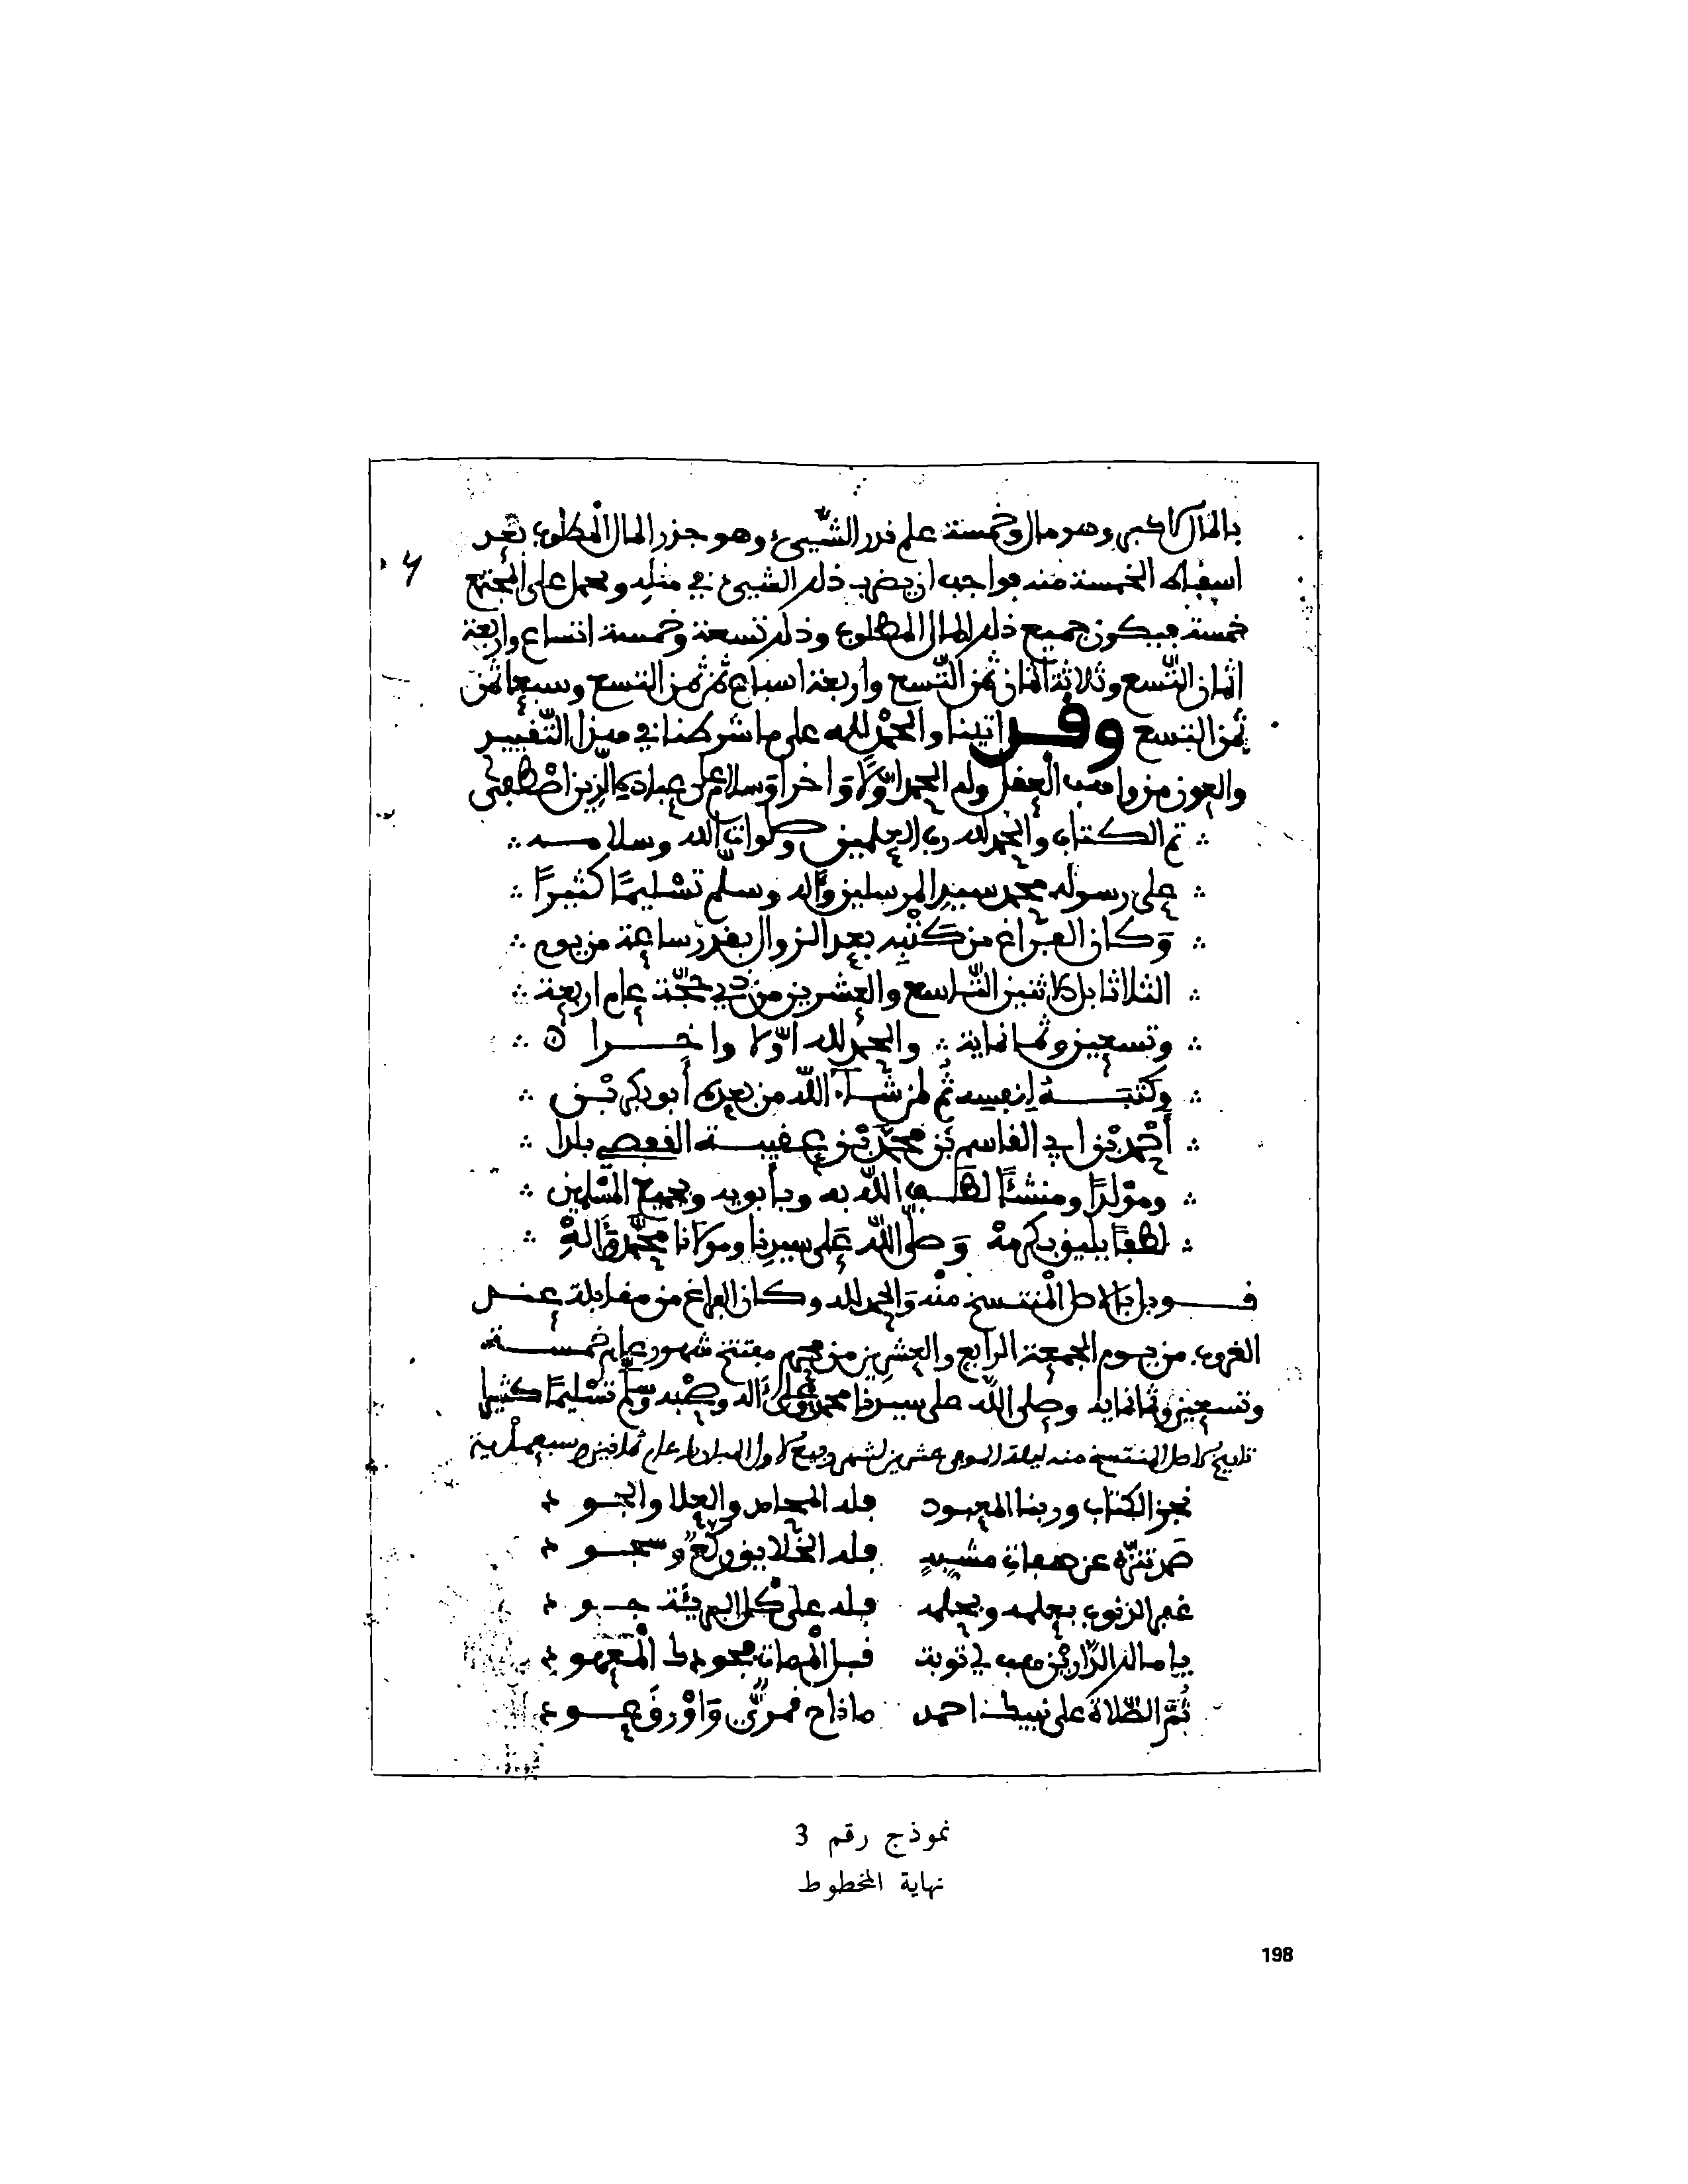 بالمال الاكبر وهو مال وخمسة علم قدر الشيىء وهو جذر المال المطلوب بعد
اسقاط الخمسة منه فواجب ان يضرب ذلك الشيىء في مثله ويحمل على المجتمع
خمسة فيكون جميع ذلك المال المطلوب وذلك تسعة وخمسة اتساع واربعة
اثمان التسع وثلاثة اثمان ثمن التسع واربعة اسباع ثمن ثمن التسع وسبعا ثمن
ثمن التسع وقد اتينا والحمد لله على ما شرطنا في هذا التقييد
والعون من واهب العقل وله الحمد اولا واخرا وسلام على عباده الذين اصطفى
تم الكتاب والحمد لله رب العلمين وصلوات الله وسلامه
على رسوله محمد سيد المرسلين وآله وسلم تسليما كثيرا
وكان الفراغ من كتبه بعد الزوال بقدر ساعة من يوم
الثلاثا بل الاثنين التاسع والعشرين من ذي حجة عام اربعة
وتسعين وثمانماية والحمد لله اولا واخرا
وكتبه لنفسه ثم لمن شاء الله من بعده أبو بكر بن
أحمد بن ابي القاسم بن محمد بن عقيبة القفصي بلدا
ومولدا ومنشئا لطف الله به وبأبويه وبجميع المسلمين
لطفا يليق بكرمه وصلى الله على سيدنا ومولانا محمد وآله
قوبل بالاصل المنتسخ منه والحمد لله وكان الفراغ من مقابلته عند
الغروب من يوم الجمعة الرابع والعشرين من محرم مفتتح شهور عام خمسة
وتسعين وثمانماية وصلى الله على سيدنا محمد وعلى آله وصحبه وسلم تسليما كثيرا
تاريخ الاصل المنتسخ منه ليلة الموفى عشرين لشهر ربيع الاول المبارك عام ثمانين وسبعماية
نجز الكتاب وربنا المعبود فله المحامد والعلا والجود
صمد تنزه عن صفات مشبه فله الخلايق ركع وسجود
غفر الذنوب بعلمه وبحلمه فله على كل البرية جود
يا مالك الدارين هب لي توبة قبل الممات بجودك المعهود
ثم الصلاة على نبيك احمد ما ناح قمري وأورق عود
نموذج رقم 3
نهاية المخطوط
198